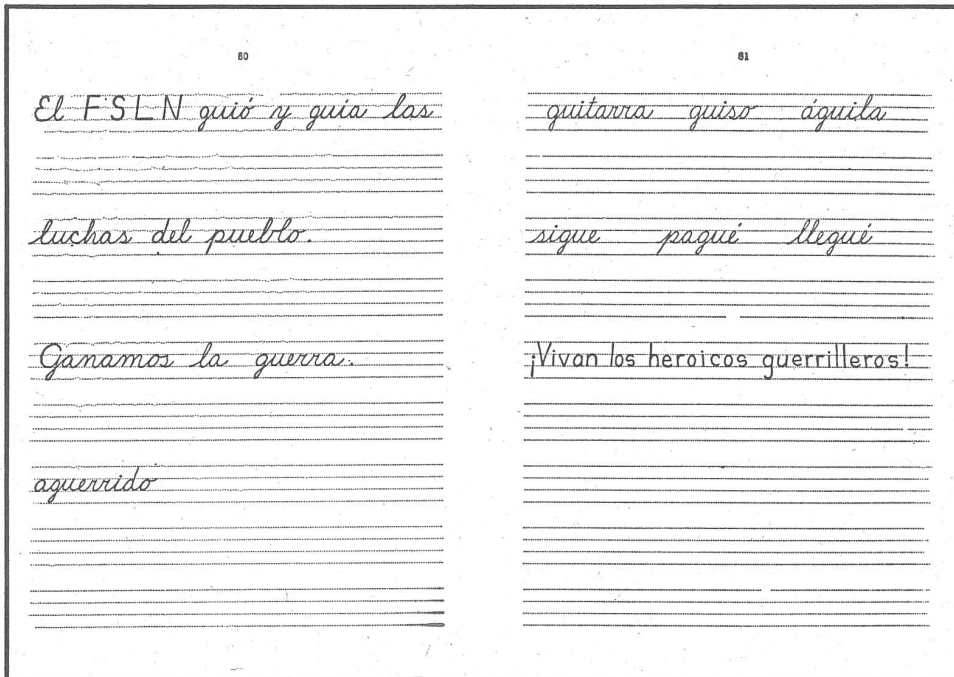 80
El FSLN guió y guía las
luchas del pueblo.
Ganamos la guerra.
aguerrido
81
guitarra guiso águila
sigue pagué llegué
¡Vivan los heroicos guerrilleros!